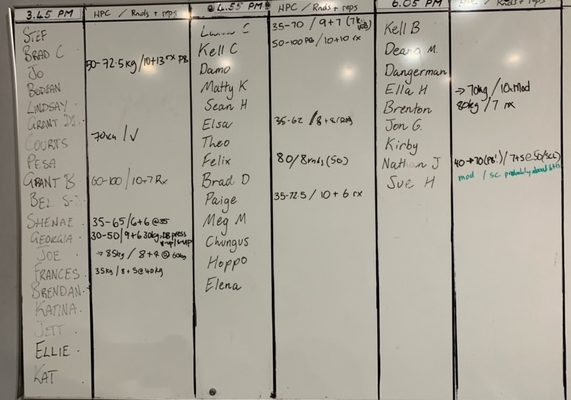 3.45 PM
HPC / Rnds + reps
STEF
BRAD C
50-72.5kg / 10+13 rx PB
JO
BODEAN
LINDSAY
GRANT DJ
COURTS
70kg / ✓
PESA
GRANT B
60-100 / 10+7 Rx
BEL S
SHENAE
35-65 / 6+6 @35
GEORGIA
30-50 / 9+6 30kg DB press
JOE
→ 85kg / 8+9 @ 60kg
FRANCES
35kg / 8+5 @ 40kg
BRENDAN
KATINA
JETT
ELLIE
KAT
4.55 PM
HPC / Rnds + reps
35-70 / 9+7
Kell C
50-100 PB / 10+10 rx
Damo
Matty K
Sean H
Elsa
35-62 / 8+
Theo
Felix
80 / 8 rnds (50)
Brad D
Paige
35-72.5 / 10+6 rx
Meg M
Chungus
Hoppo
Elena
6.05 PM
HPC / Rnds + reps
Kell B
Deana M.
Dangerman
Ella H
→ 70kg / 10 Mod
Brenton
80kg / 7 rx
Jon G.
Kirby
Nathan J
40→70 (PB!) / 7+5 @ 50 (SC)
Sue H
mod / sc probably about